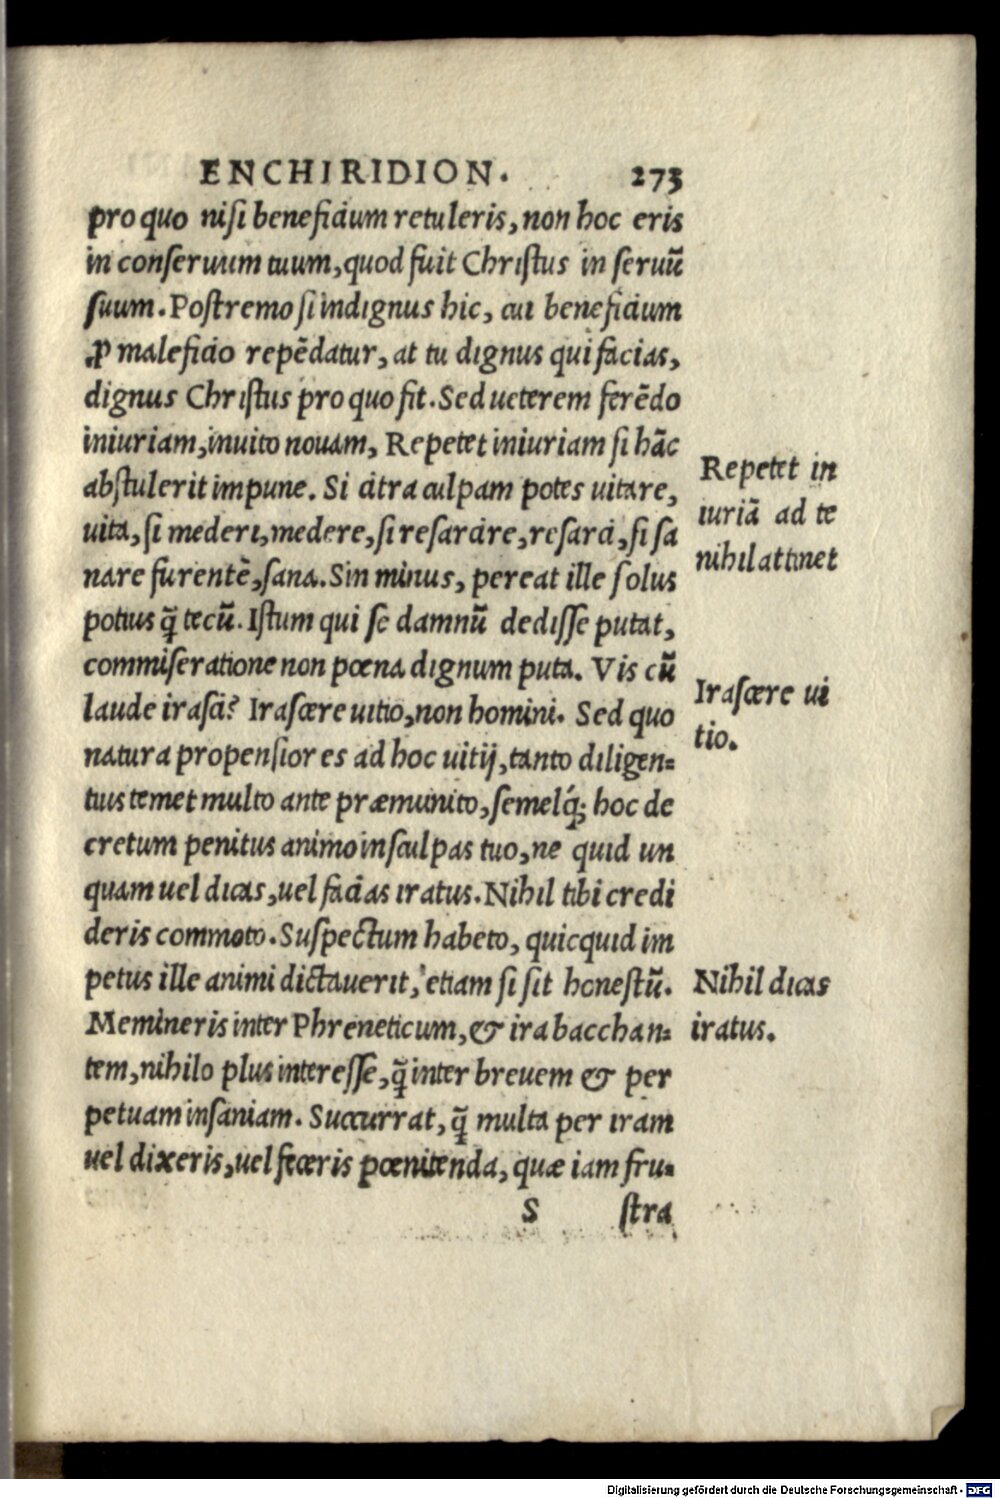 ENCHIRIDION. 273
pro quo nisi beneficium retuleris, non hoc eris
in conseruum tuum, quod fuit Christus in seruũ
suum. Postremo si indignus hic, cui beneficium
ꝓ maleficio repẽdatur, at tu dignus qui facias,
dignus Christus pro quo fit. Sed ueterem ferẽdo
iniuriam, inuito nouam, Repetet iniuriam si hãc
abstulerit impune. Si citra culpam potes uitare,
uita, si mederi, medere, si resarcire, resarci, si sa
nare furentẽ, sana. Sin minus, pereat ille solus
potius q̃ tecũ. Istum qui se damnũ dedisse putat,
commiseratione non pœna dignum puta. Vis cũ
laude irasci? Irascere uitio, non homini. Sed quo
natura propensior es ad hoc uitij, tanto diligen=
tius temet multo ante præmunito, semelq́; hoc de
cretum penitus animo insculpas tuo, ne quid un
quam uel dicas, uel facias iratus. Nihil tibi credi
deris commoto. Suspectum habeto, quicquid im
petus ille animi dictauerit, etiam si sit honestũ.
Memineris inter Phreneticum, & ira bacchan=
tem, nihilo plus interesse, q̃ inter breuem & per
petuam insaniam. Succurrat, q̃ multa per iram
uel dixeris, uel feceris pœnitenda, quæ iam fru=
S stra
Repetet in
iuriã ad te
nihil attinet
Irascere ui
tio.
Nihil dicas
iratus.
Digitalisierung gefördert durch die Deutsche Forschungsgemeinschaft - DFG